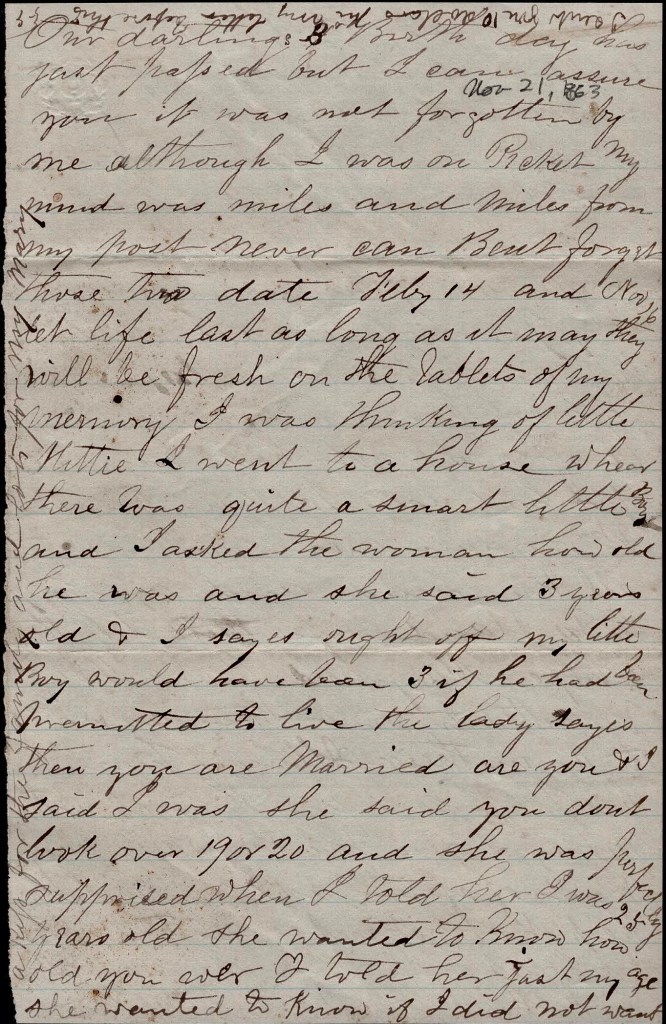 I sent you 10 dollars in my letter before this
Our darlings 3 Birth day has
just passed but I can assure
Nov 21, 1863
you it was not forgotten by
me although I was on Picket My
mind was miles and miles from
my post never can Bent forget
those two date Feby 14 and Nov 16
let life last as long as it may they
will be fresh on the tablets of my
memory I was thinking of little
Kittie I went to a house whear
there was quite a smart little Boy
and I asked the woman how old
he was and she said 3 years
old & I sayes right off my little
Boy would have been 3 if he had been
permitted to live the lady sayes
then you are Married are you & I
said I was she said you dont
look over 19 or 20 and she was perfectly
supprised when I told her I was 25
years old she wanted to Know how
old you wer I told her just my age
she wanted to Know if I did not want
a kiss for the family and for my Mary